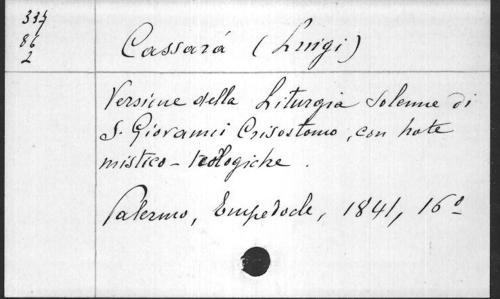 337
86
2
Cassará (Luigi)
Versione della Liturgia Solenne di
S. Giovanni Crisostomo, con note
mistico-teologiche.
Palermo, Empedocle, 1841, 16º